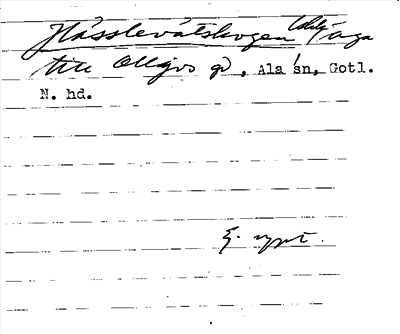 Hässlevätskogen äga
till Ollajvs gd, Ala sn, Gotl.
N. hd.
Ej upt.